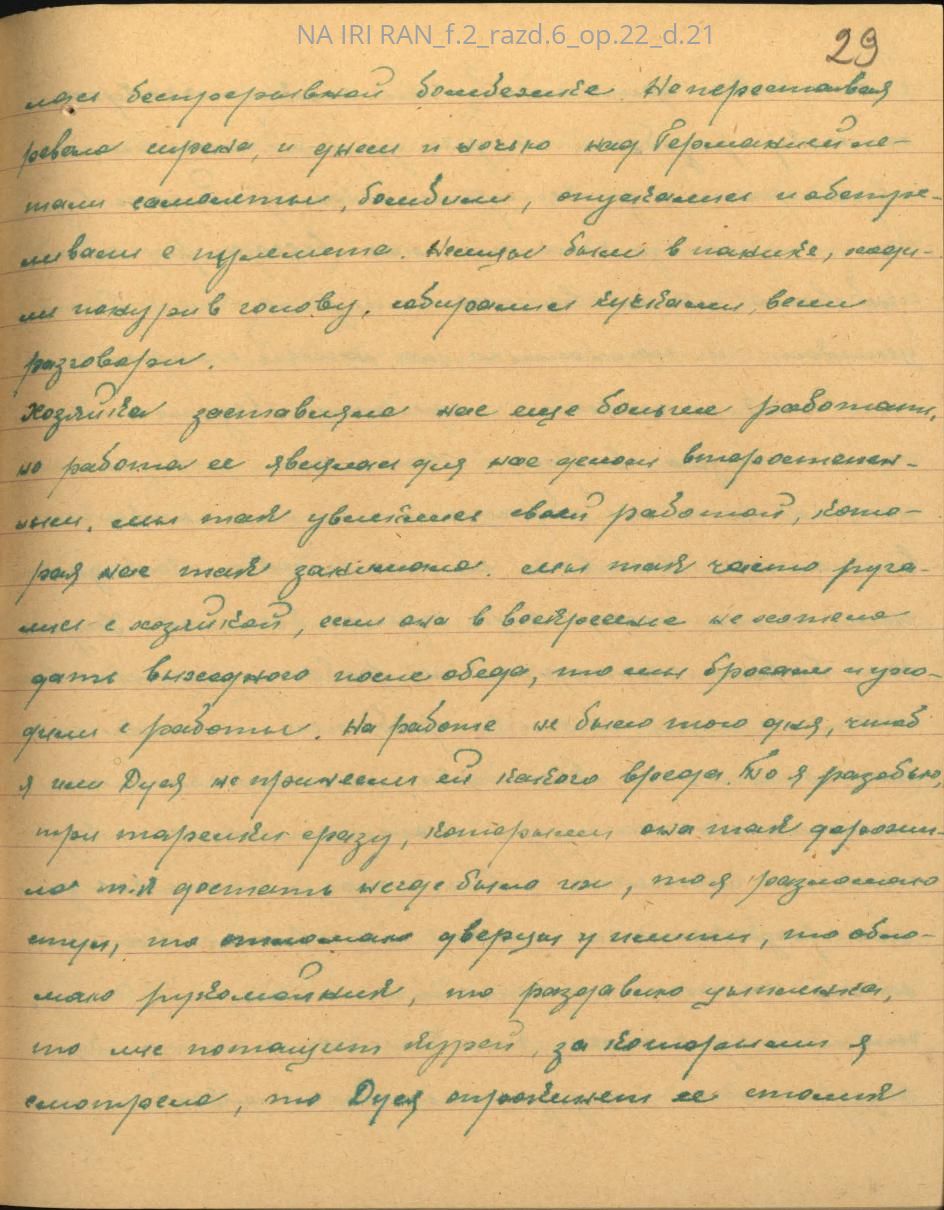 NA IRI RAN_f.2_razd.6_op.22_d.21
29
лась беспрерывной бомбежке. Непереставая
ревела сирена, и днем и ночью над Германией ле-
тали самолеты, бомбили, опускались и обстре-
ливали с пулемета. Немцы были в панике, ходи-
ли понурив голову, собирались кучками, вели
разговоры.
Хозяйка заставляла нас еще больше работать,
но работа ее являлась для нас делом второстепен-
ным. Мы так увлеклись своей работой, кото-
рая нас так занимала. Мы так часто руга-
лись с хозяйкой, если она в воскресенье не хотела
дать выходного после обеда, то мы бросали и ухо-
дили с работы. На работе не было того дня, чтоб
я или Дуся не принесли ей какого вреда. То я разобью,
три тарелки сразу, которыми она так дорожи-
ла т.к достать негде было их, то я разломаю
стул, то отломаю дверцы у плиты, то обло-
маю рукомойник, то раздавлю цыпленка,
то лис потащит курей, за которыми я
смотрела, то Дуся опрокинет ее столик